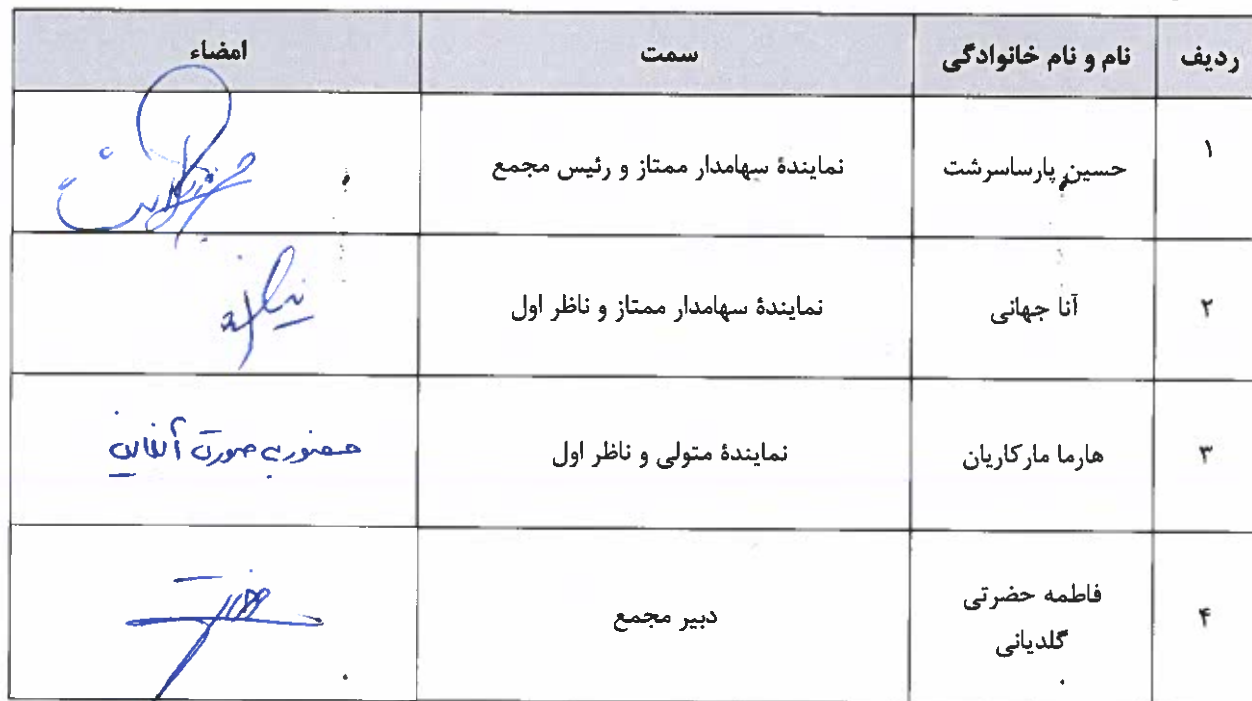 ردیف نام و نام خانوادگی سمت امضاء
۱ حسین پارساسرشت نمایندۀ سهامدار ممتاز و رئیس مجمع
۲ آنا جهانی نمایندۀ سهامدار ممتاز و ناظر اول
۳ هارما مارکاریان نمایندۀ متولی و ناظر اول حضور به صورت آنلاین
۴ فاطمه حضرتی
گلدیانی دبیر مجمع